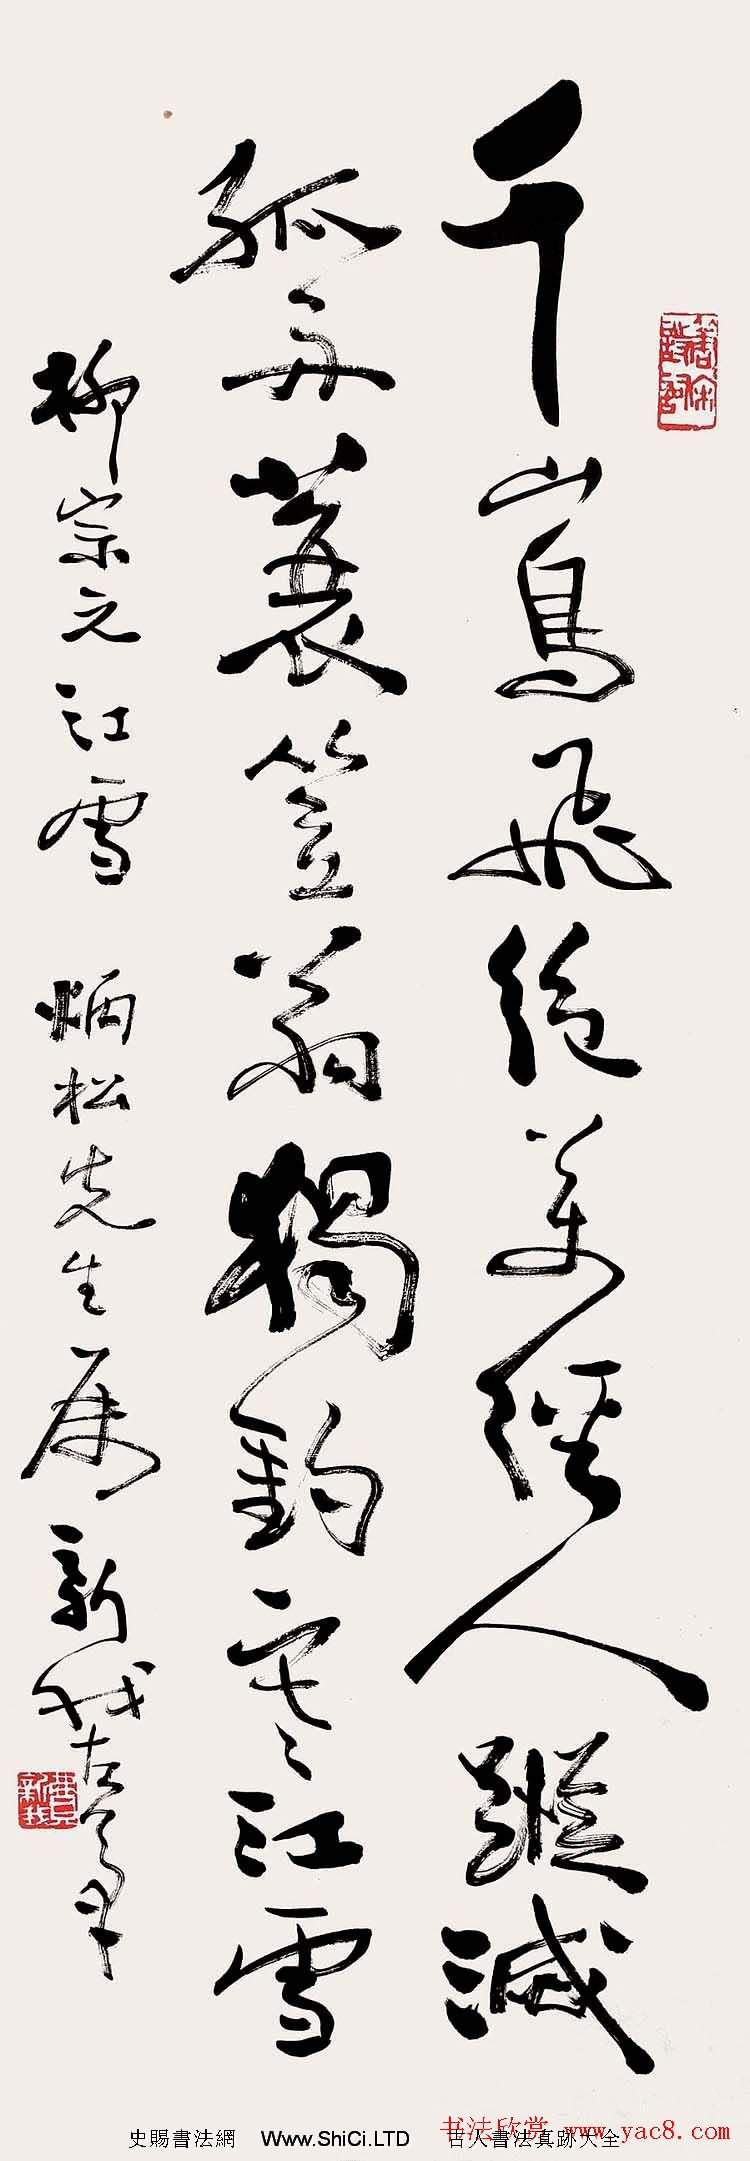 千山鳥飛絕萬徑人蹤滅
孤舟蓑笠翁獨釣寒江雪
柳宗元江雪 炳松先生属 新我左筆
史賜書法網 Www.ShiCi.LTD 古人書法真跡大全
书法欣赏 www.yac8.com